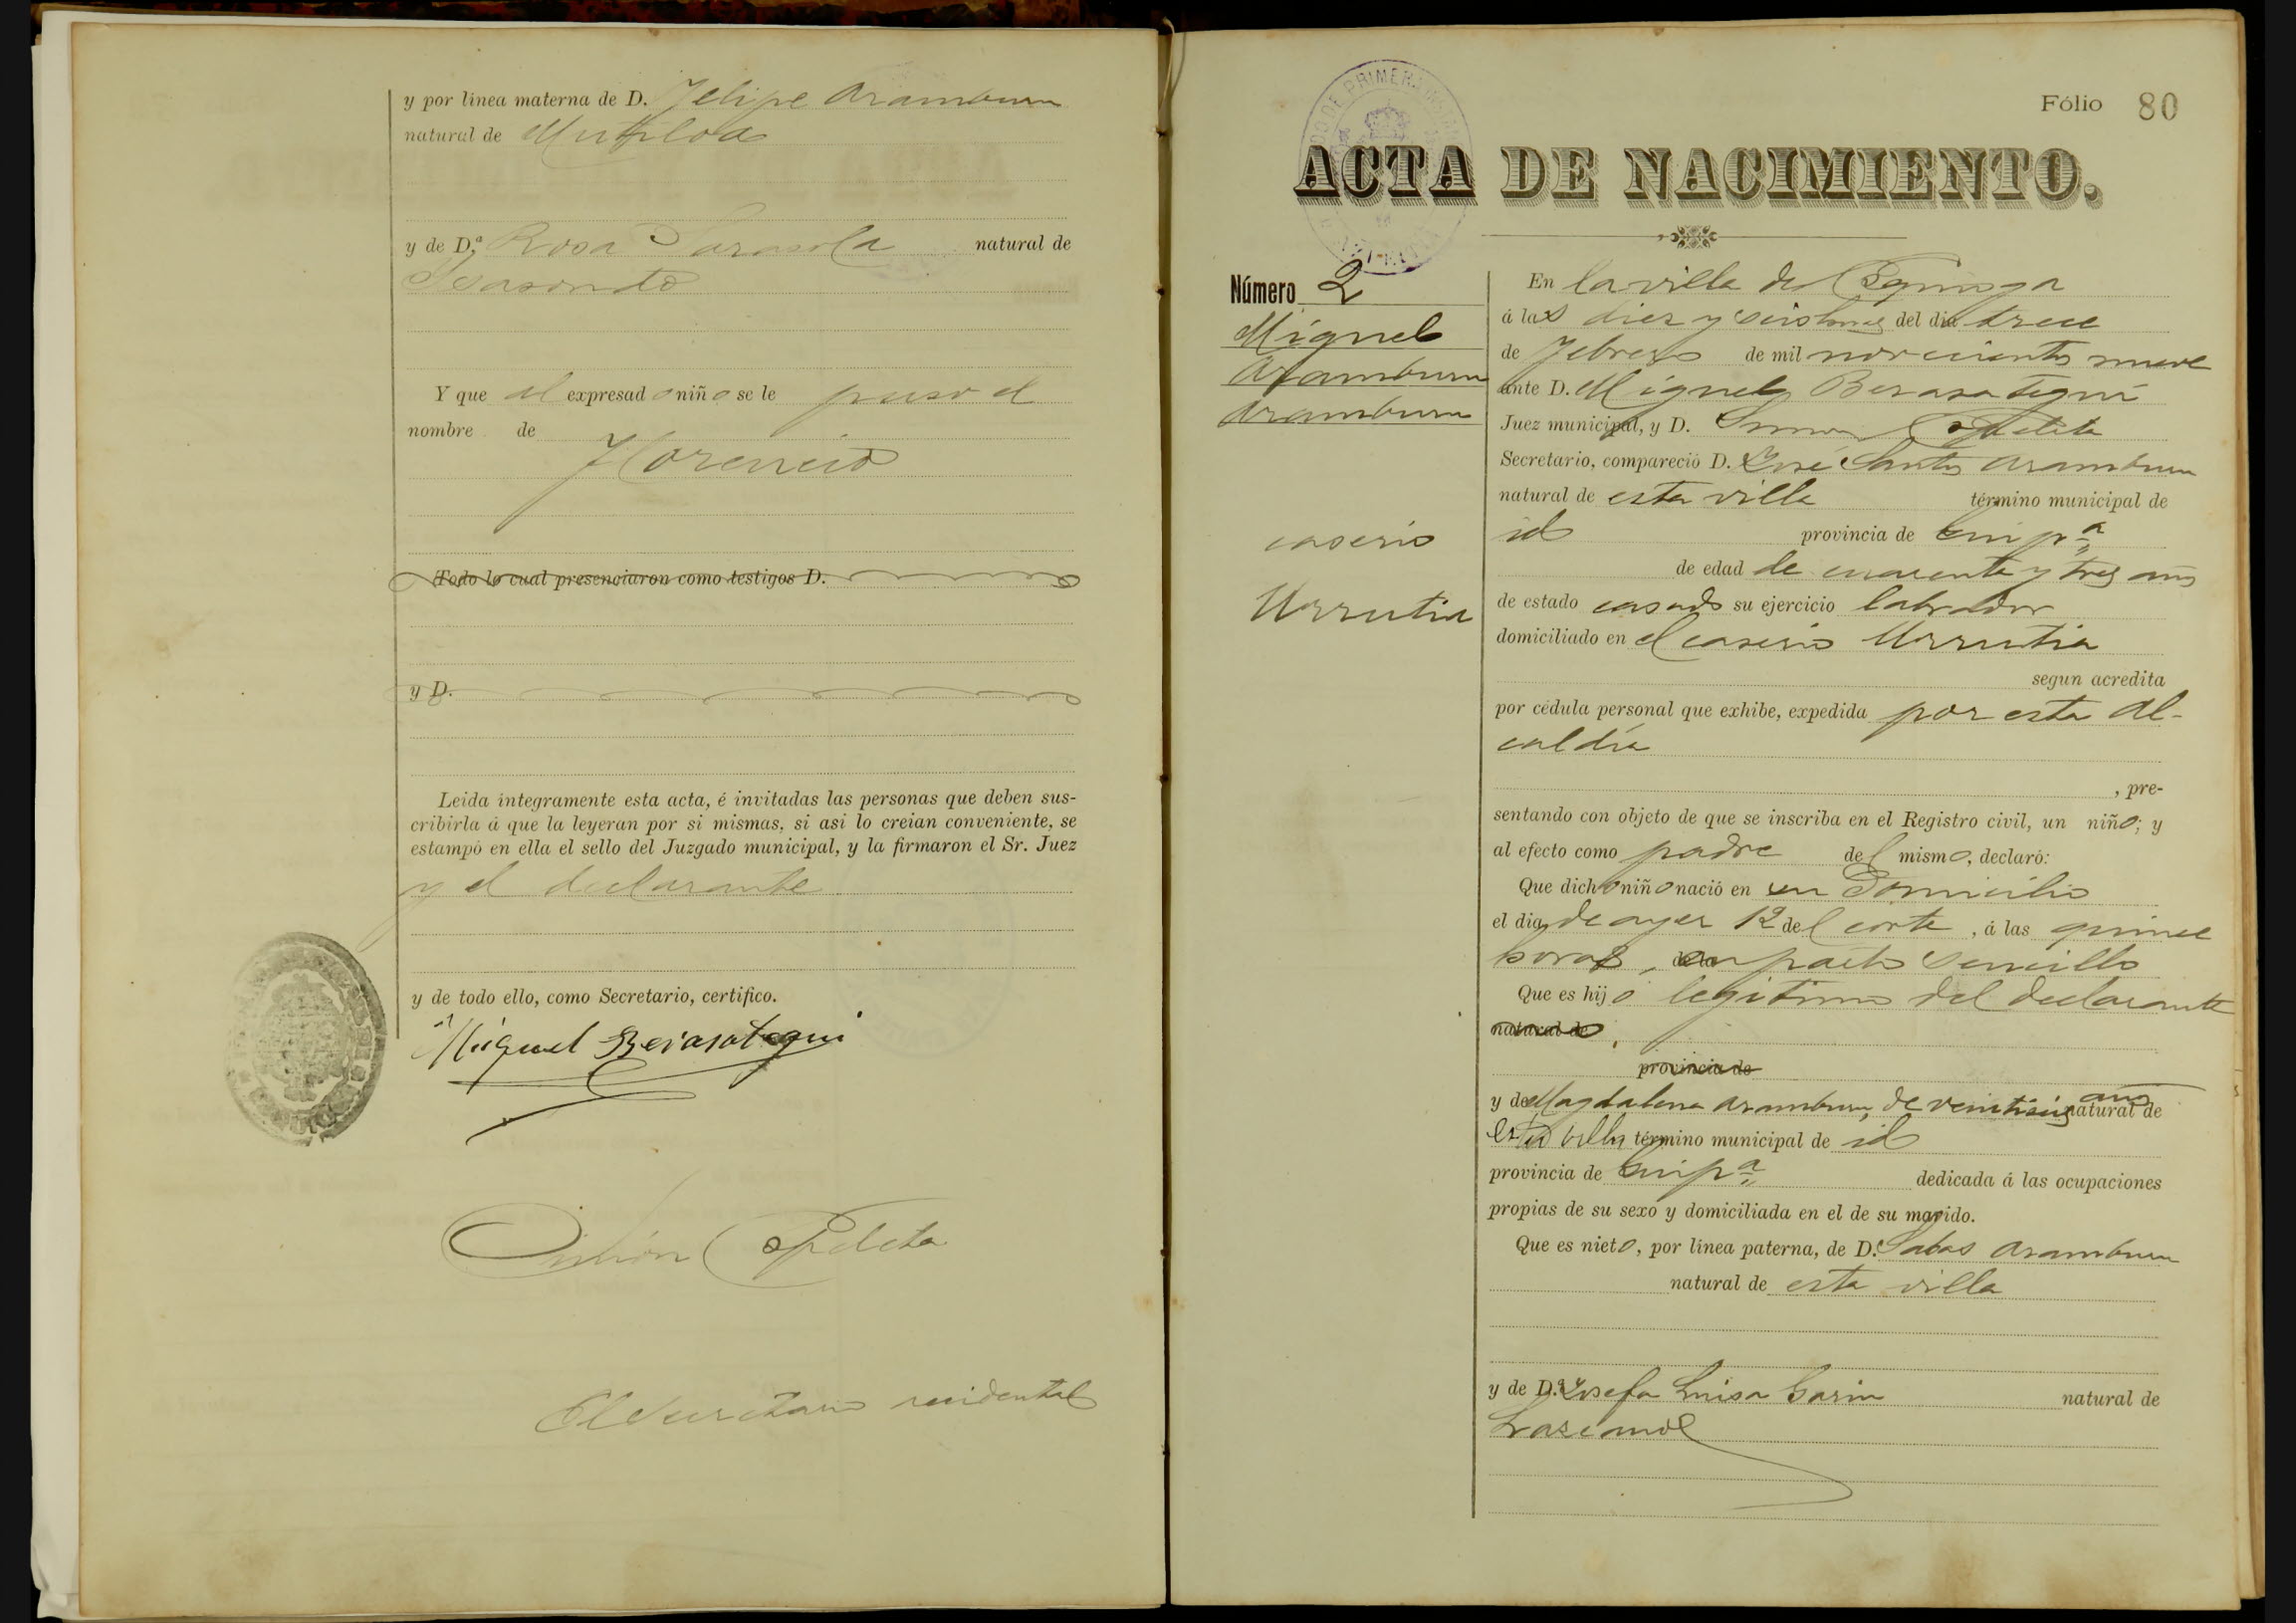 y por línea materna de D. Felipe Aramburu
natural de Mutiloa
y de D.ª Rosa Sarasola natural de
Isasondo
Y que al expresado niño se le puso el
nombre de
Florencio
Todo lo cual presenciaron como testigos D.
y D.
Leida íntegramente esta acta, é invitadas las personas que deben sus-
cribirla á que la leyeran por si mismas, si asi lo creian conveniente, se
estampó en ella el sello del Juzgado municipal, y la firmaron el Sr. Juez
y el declarante
y de todo ello, como Secretario, certifico.
Miguel Berasategui
Simón Apeleta
El Secretario accidental
Fólio 80
ACTA DE NACIMIENTO.
Número 2
Miguel
Aramburu
Aramburu
caserio
Urrutia
En la villa de
á las diez y seis horas del dia trece
de Febrero de mil novecientos nueve
ante D. Miguel Berasategui
Juez municipal, y D. Simon Apeleta
Secretario, compareció D. José Santos Aramburu
natural de esta villa término municipal de
id provincia de Guip.ª
de edad de cuarenta y tres años
de estado casado su ejercicio labrador
domiciliado en el caserio Urrutia
segun acredita
por cédula personal que exhibe, expedida por esta Al-
caldía
, pre-
sentando con objeto de que se inscriba en el Registro civil, un niño; y
al efecto como padre del mismo, declaró:
Que dicho niño nació en su Domicilio
el dia de ayer 12 del corte, á las quince
horas, en parto sencillo
Que es hijo legitimo del declarante
natural de
provincia de
y de Magdalena Aramburu, de veintiseis años natural de
esta villa término municipal de id
provincia de Guip.ª dedicada á las ocupaciones
propias de su sexo y domiciliada en el de su marido.
Que es nieto, por línea paterna, de D. Sabas Aramburu
natural de esta villa
y de D.ª Josefa Luisa Garin natural de
Lazcano